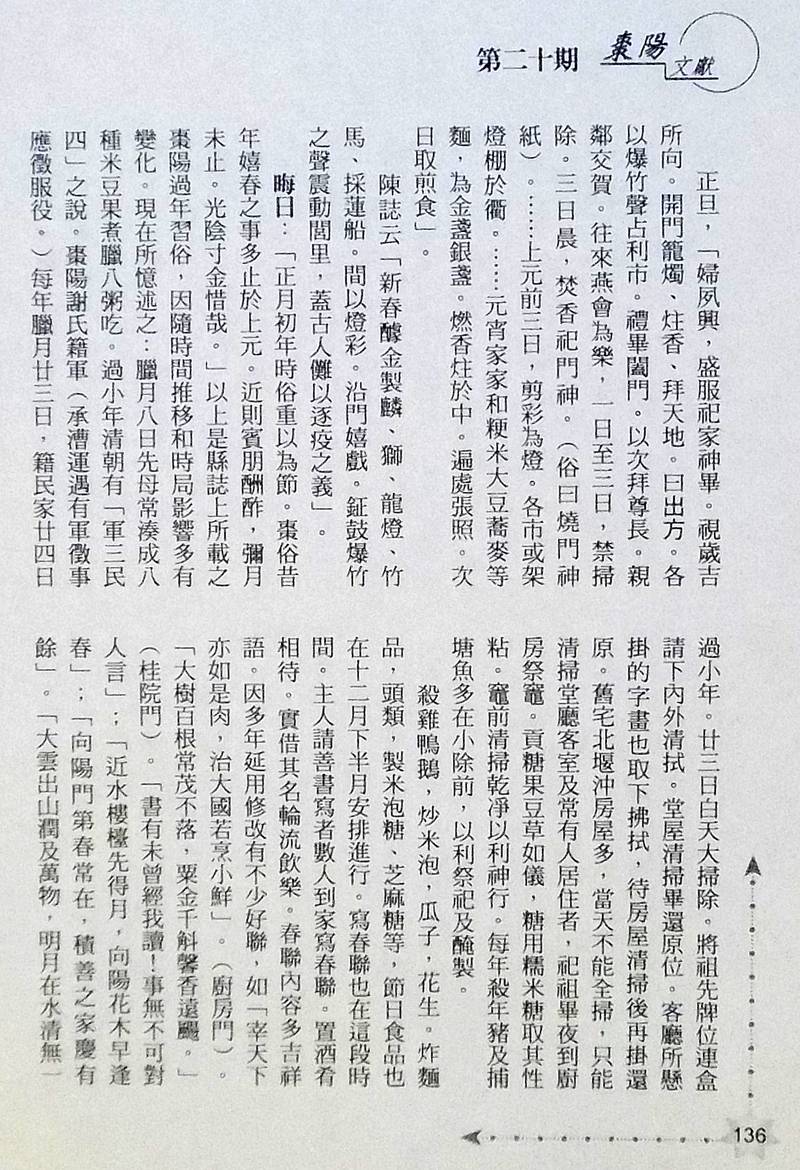 第二十期
棗陽
文獻
正旦，「婦夙興，盛服祀家神畢。視歲吉
所向。開門籠燭、炷香、拜天地。曰出方。各
以爆竹聲占利市。禮畢闔門。以次拜尊長。親
鄰交賀。往來燕會為樂，一日至三日，禁掃
除。三日晨，焚香祀門神。（俗曰燒門神
紙）。……上元前三日，剪彩為燈。各市或架
燈棚於衢。……元宵家家和粳米大豆蕎麥等
麵，為金盞銀盞。燃香炷於中。遍處張照。次
日取煎食」。
陳誌云「新春醵金製麟、獅、龍燈、竹
馬、採蓮船。間以燈彩。沿門嬉戲。鉦鼓爆竹
之聲震動閭里，蓋古人儺以逐疫之義」。
晦日：「正月初年時俗重以為節。棗俗昔
年嬉春之事多止於上元。近則賓朋酬酢，彌月
未止。光陰寸金惜哉。」以上是縣誌上所載之
棗陽過年習俗，因隨時間推移和時局影響多有
變化。現在所憶述之：臘月八日先母常湊成八
種米豆果煮臘八粥吃。過小年清朝有「軍三民
四」之說。棗陽謝氏籍軍（承漕運遇有軍徵事
應徵服役。）每年臘月廿三日，籍民家廿四日
過小年。廿三日白天大掃除。將祖先牌位連盒
請下內外清拭。堂屋清掃畢還原位。客廳所懸
掛的字畫也取下拂拭，待房屋清掃後再掛還
原。舊宅北堰沖房屋多，當天不能全掃，只能
清掃堂廳客室及常有人居住者，祀祖畢夜到廚
房祭竈。貢糖果豆草如儀，糖用糯米糖取其性
粘。竈前清掃乾凈以利神行。每年殺年豬及捕
塘魚多在小除前，以利祭祀及醃製。
殺雞鴨鵝，炒米泡，瓜子，花生。炸麵
品，頭類，製米泡糖　芝麻糖等，節日食品也
在十二月下半月安排進行。寫春聯也在這段時
間。主人請善書寫者數人到家寫春聯。置酒肴
相待。實借其名輪流飲樂。春聯內容多吉祥
語。因多年延用修改有不少好聯，如「宰天下
亦如是肉，治大國若烹小鮮」。（廚房門）。
「大樹百根常茂不落，粟金千斛馨香遠颺。」
（桂院門）。「書有未曾經我讀！事無不可對
人言」；「近水樓檯先得月，向陽花木早逢
春」；「向陽門第春常在，積善之家慶有
餘」。「大雲出山潤及萬物，明月在水清無一
136